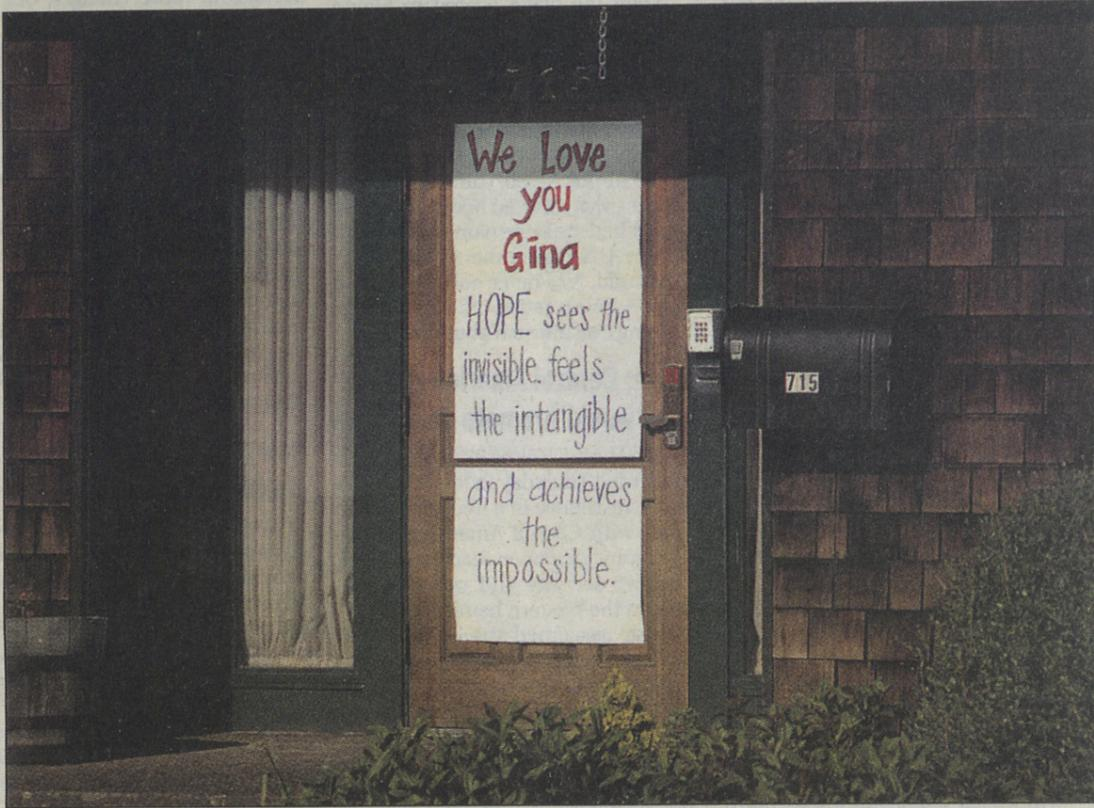 We Love
you
Gina
HOPE sees the
invisible. feels
the intangible
and achieves
the
impossible.
715